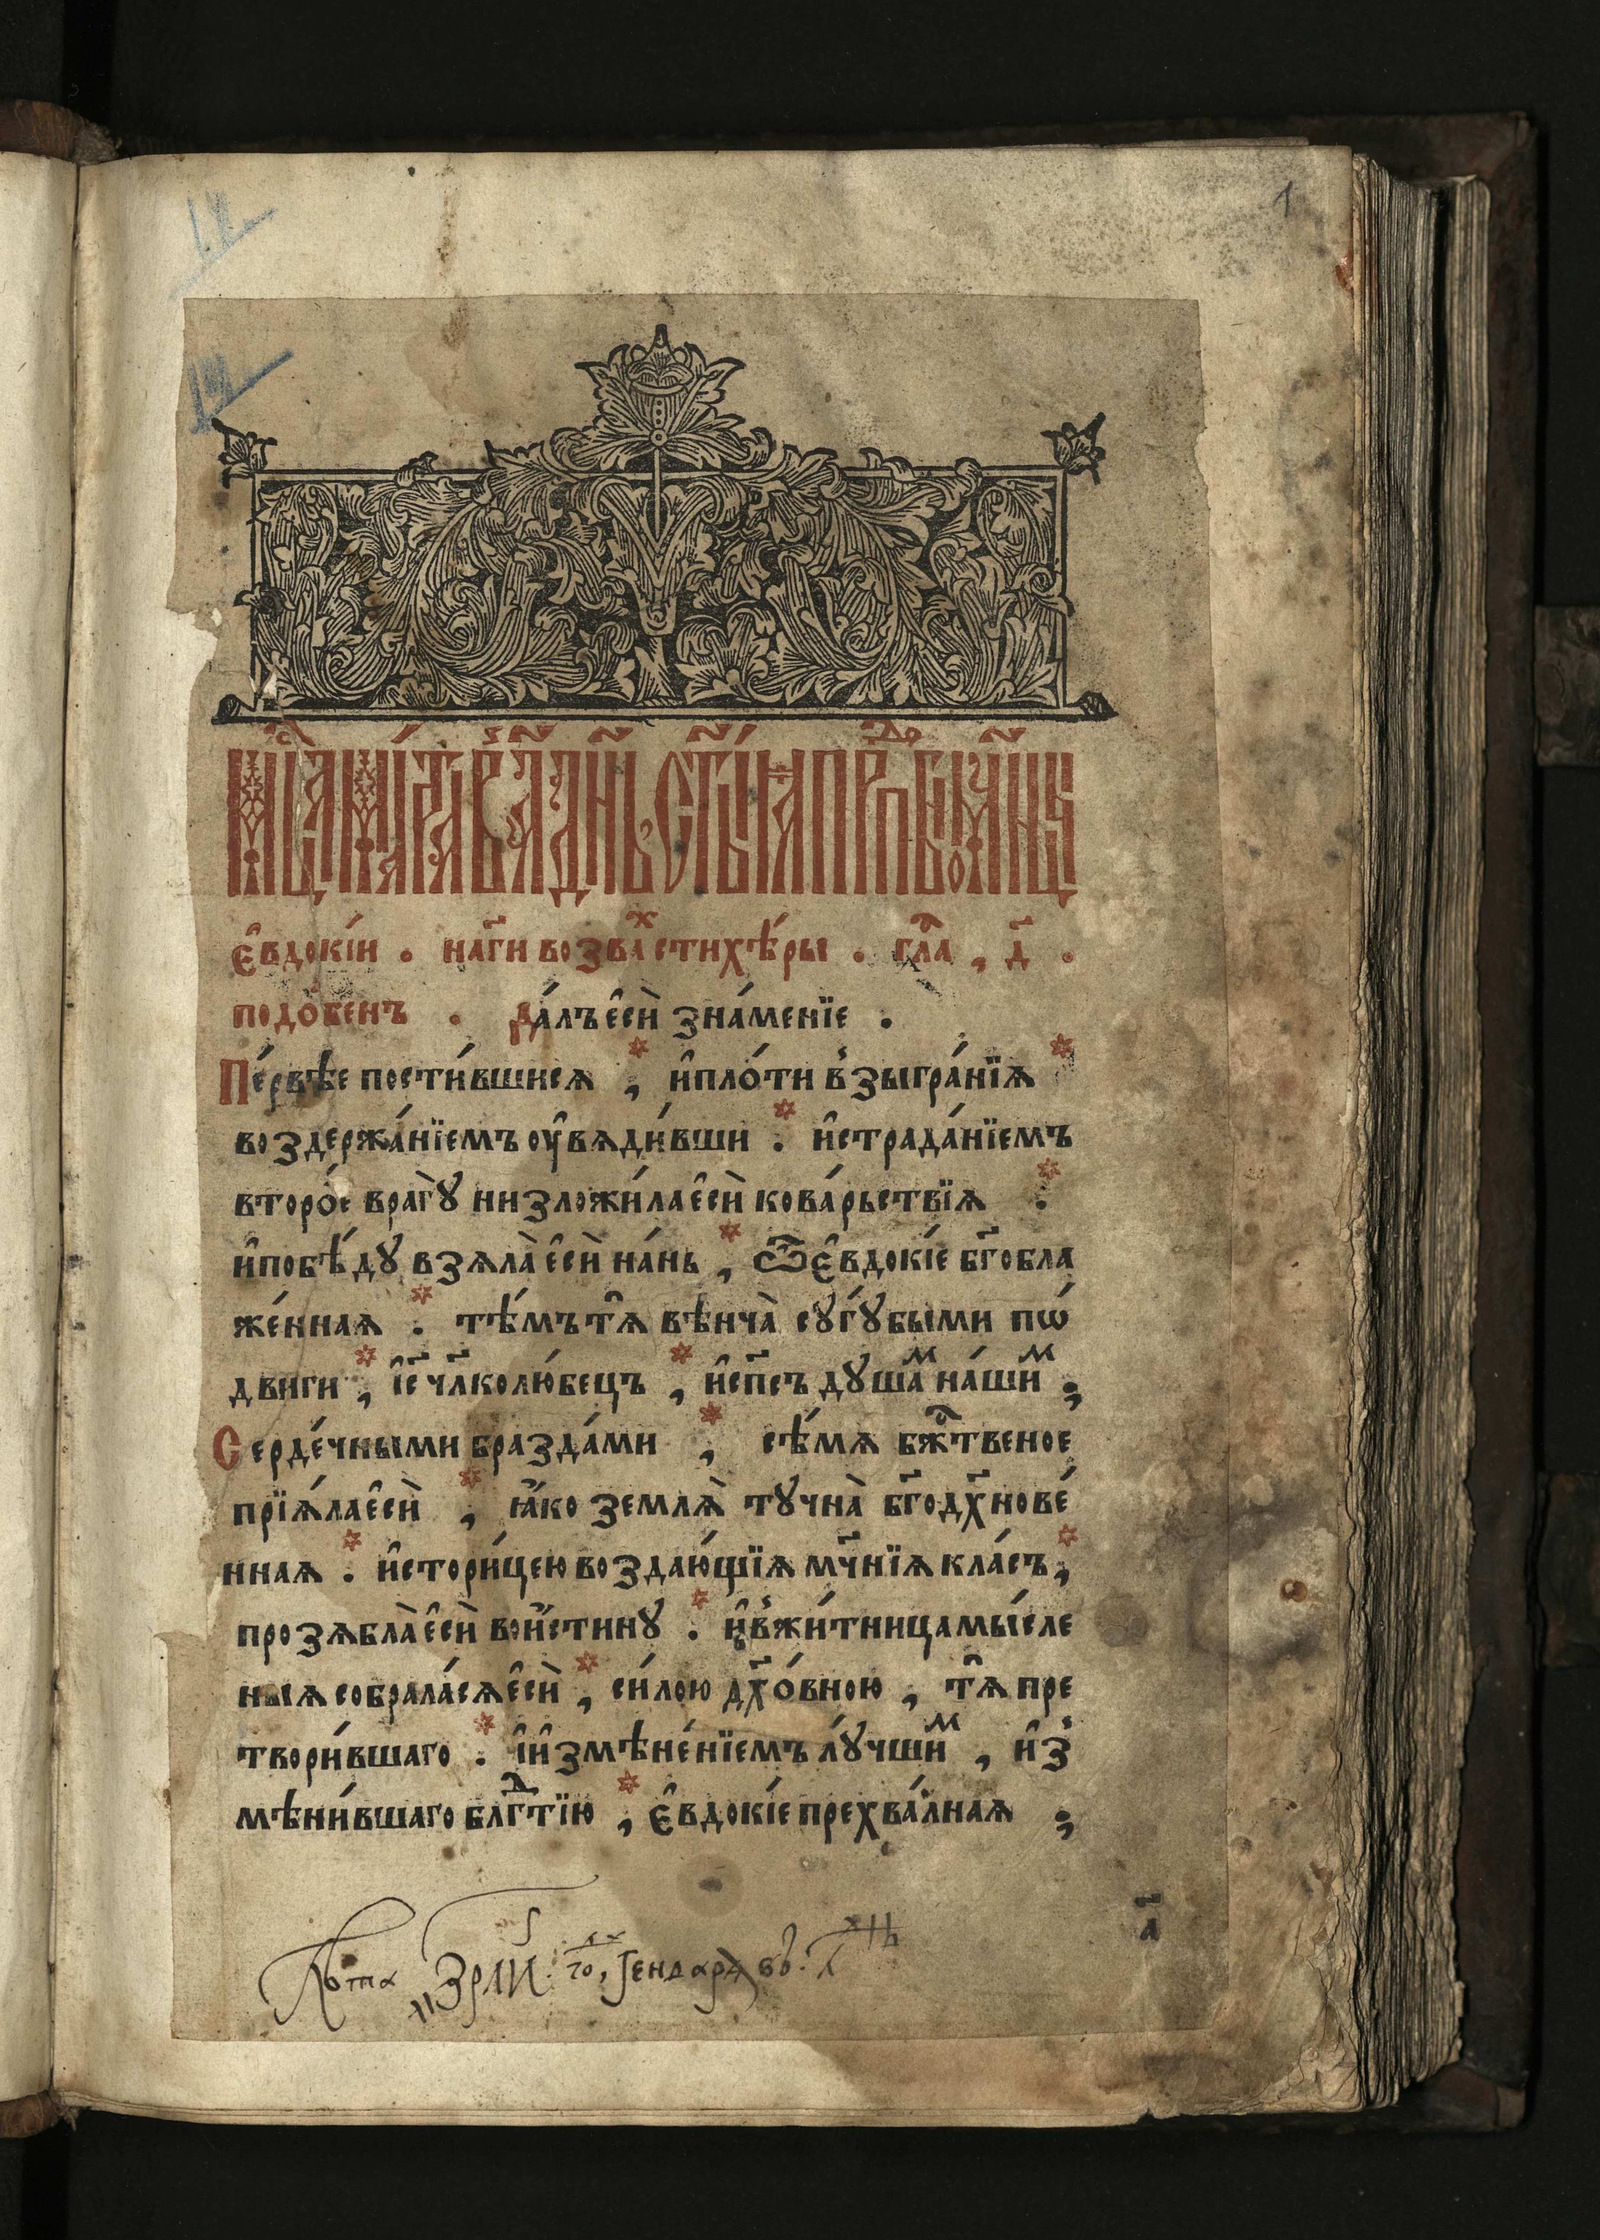 1
12
12
Мⷭ҇ца ма́рта в҃ а҃ дн҃ь ст҃ы́ѧ прⷣпⷣбномч҃нцы
є҆вдокі́и . на гⷭ҇и возва̑ стихѣ́ры . гла̑ , д҃ .
подо́бенъ . Да́лъ є҆сѝ зна́менїе .
Пе́рвѣе пости́вшисѧ , и҆ пло́ти взыгра́нїѧ
воздержа́нїемъ ᲂу҆вѧди́вши . и҆ страда́нїемъ
второ́е врагꙋ̀ низложи́ла є҆сѝ кова́рьствїѧ .
и҆ побѣ́дꙋ взѧла̀ є҆сѝ на́нь , ѿ є҆вдокі́е бг҃обла
же́ннаѧ . тѣ́мъ тѧ̑ вѣнча̀ сꙋгꙋ́быми пѡ́
двиги , і҆с҃е чл҃колю́бецъ , и҆ сп҃съ дꙋша́ⷨ на́шиⷨ ,
Серде́чными бразда́ми , сѣ́мѧ бжⷭ҇твеное
прїѧ́ла є҆сѝ , ꙗ҆́ко землѧ̀ тꙋчна̀ бг҃одх҃нове́
ннаѧ . и҆ стори́цею воздаю́щїѧ мч҃нїѧ кла́съ ,
прозѧбла̀ є҆сѝ вои́стинꙋ . и҆ в жи́тница мы́сле
ныѧ собрала́сѧ є҆сѝ , си́лою дх҃о́вною , тѧ̑ пре
твори́вшаго . і҆ и҆змѣне́нїемъ лꙋ́чшиⷨ , и҆з
мѣни́вшаго блгⷣтїю , є҆вдокі́е прехва́лнаѧ ,
а҃
Лѣта ҂зрли го, гендарѧ въ